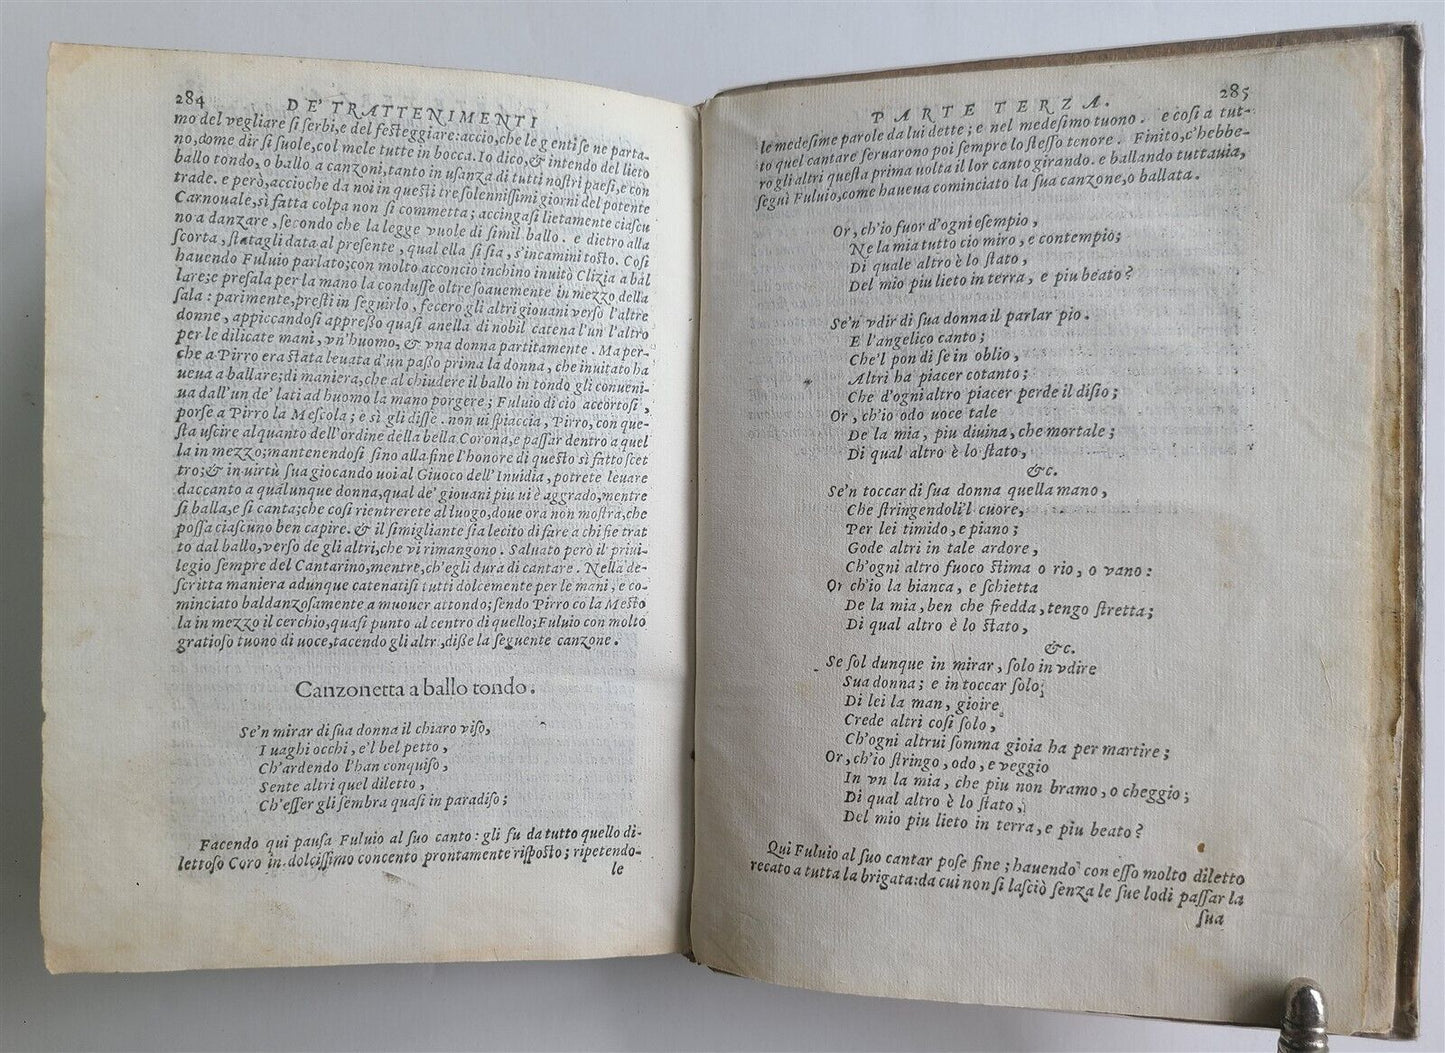 284 DE' TRATTENIMENTI
mo del vegliare si serbi, e del festeggiare: accio, che le genti se ne parta-
no, come dir si suole, col mele tutte in bocca. Io dico, & intendo del lieto
ballo tondo, o ballo a canzoni, tanto in usanza di tutti nostri paesi, e con
trade. e però, acciòche da noi in questi tre solennissimi giorni del potente
Carnouale, sì fatta colpa non si commetta; accingasi lietamente ciascu
no a danzare, secondo che la legge vuole di simil ballo. e dietro alla
scorta, statagli data al presente, qual ella si sia, s'incamini tosto. Così
hauendo Fuluio parlato; con molto acconcio inchino inuitò Clizia a bal
lare; e presala per la mano la condusse oltre soauemente in mezzo della
sala: parimente, presti in seguirlo, fecero gli altri giouani verso l'altre
donne, appiccandosi appresso quasi anella di nobil catena l'un l'altro
per le dilicate mani, vn'huomo, & vna donna partitamente. Ma per-
che a Pirro era stata leuata d'un passo prima la donna, che inuitato ha
ueua a ballare; di maniera, che al chiudere il ballo in tondo gli conueni-
ua dall'un de' lati ad huomo la mano porgere; Fuluio di ciò accortosi,
porse a Pirro la Mescola; e sì gli disse. non ui spiaccia, Pirro, con que-
sta uscire alquanto dell'ordine della bella Corona, e passar dentro a quel
la in mezzo; mantenendosi sino alla fine l'honore di questo sì fatto scet
tro; & in uirtù sua giocando uoi al Giuoco dell'Inuidia, potrete leuare
daccanto a qualunque donna, qual de' giouani piu ui è aggrado, mentre
si balla, e si canta; che così rientrerete al luogo, doue ora non mostra, che
possa ciascuno ben capire. & il simigliante sia lecito di fare a chi fie trat
to dal ballo, verso de gli altri, che vi rimangono. Saluato però il priui-
legio sempre del Cantarino, mentre, ch'egli dura di cantare. Nella de-
scritta maniera adunque catenatisi tutti dolcemente per le mani, e co-
minciato baldanzosamente a muouer attondo; sendo Pirro cò la Mesto
la in mezzo il cerchio, quasi punto al centro di quello; Fuluio con molto
gratioso tuono di uoce, tacendo gli altr, disse la seguente canzone.
Canzonetta a ballo tondo.
Se'n mirar di sua donna il chiaro viso,
I uaghi occhi, e'l bel petto,
Ch'ardendo l'han conquiso,
Sente altri quel diletto,
Ch'esser gli sembra quasi in paradiso;
Facendo qui pausa Fuluio al suo canto: gli fu da tutto quello di-
lettoso Coro in dolcissimo concento prontamente risposto; ripetendo-
le
PARTE TERZA. 285
le medesime parole da lui dette; e nel medesimo tuono. e così a tut-
to quel cantare seruarono poi sempre lo stesso tenore. Finito, c'hebbe-
ro gli altri questa prima uolta il lor canto girando. e ballando tuttauia,
seguì Fuluio, come haueua cominciato la sua canzone, o ballata.
Or, ch'io fuor d'ogni esempio,
Ne la mia tutto cio miro, e contempio;
Di quale altro è lo stato,
Del mio piu lieto in terra, e piu beato?
Se'n vdir di sua donna il parlar pio.
E l'angelico canto;
Che'l pon di se in oblio,
Altri ha piacer cotanto;
Che d'ogni altro piacer perde il disio;
Or, ch'io odo uoce tale
De la mia, piu diuina, che mortale;
Di qual altro è lo stato,
&c.
Se'n toccar di sua donna quella mano,
Che stringendoli'l cuore,
Per lei timido, e piano;
Gode altri in tale ardore,
Ch'ogni altro fuoco stima o rio, o vano:
Or ch'io la bianca, e schietta
De la mia, ben che fredda, tengo stretta;
Di qual altro è lo stato,
&c.
Se sol dunque in mirar, solo in vdire
Sua donna; e in toccar solo;
Di lei la man, gioire
Crede altri così solo,
Ch'ogni altrui somma gioia ha per martire;
Or, ch'io stringo, odo, e veggio
In vn la mia, che piu non bramo, o cheggio;
Di qual altro è lo stato,
Del mio piu lieto in terra, e piu beato?
Qui Fuluio al suo cantar pose fine; hauendo con esso molto diletto
recato a tutta la brigata: da cui non si lasciò senza le sue lodi passar la
sua